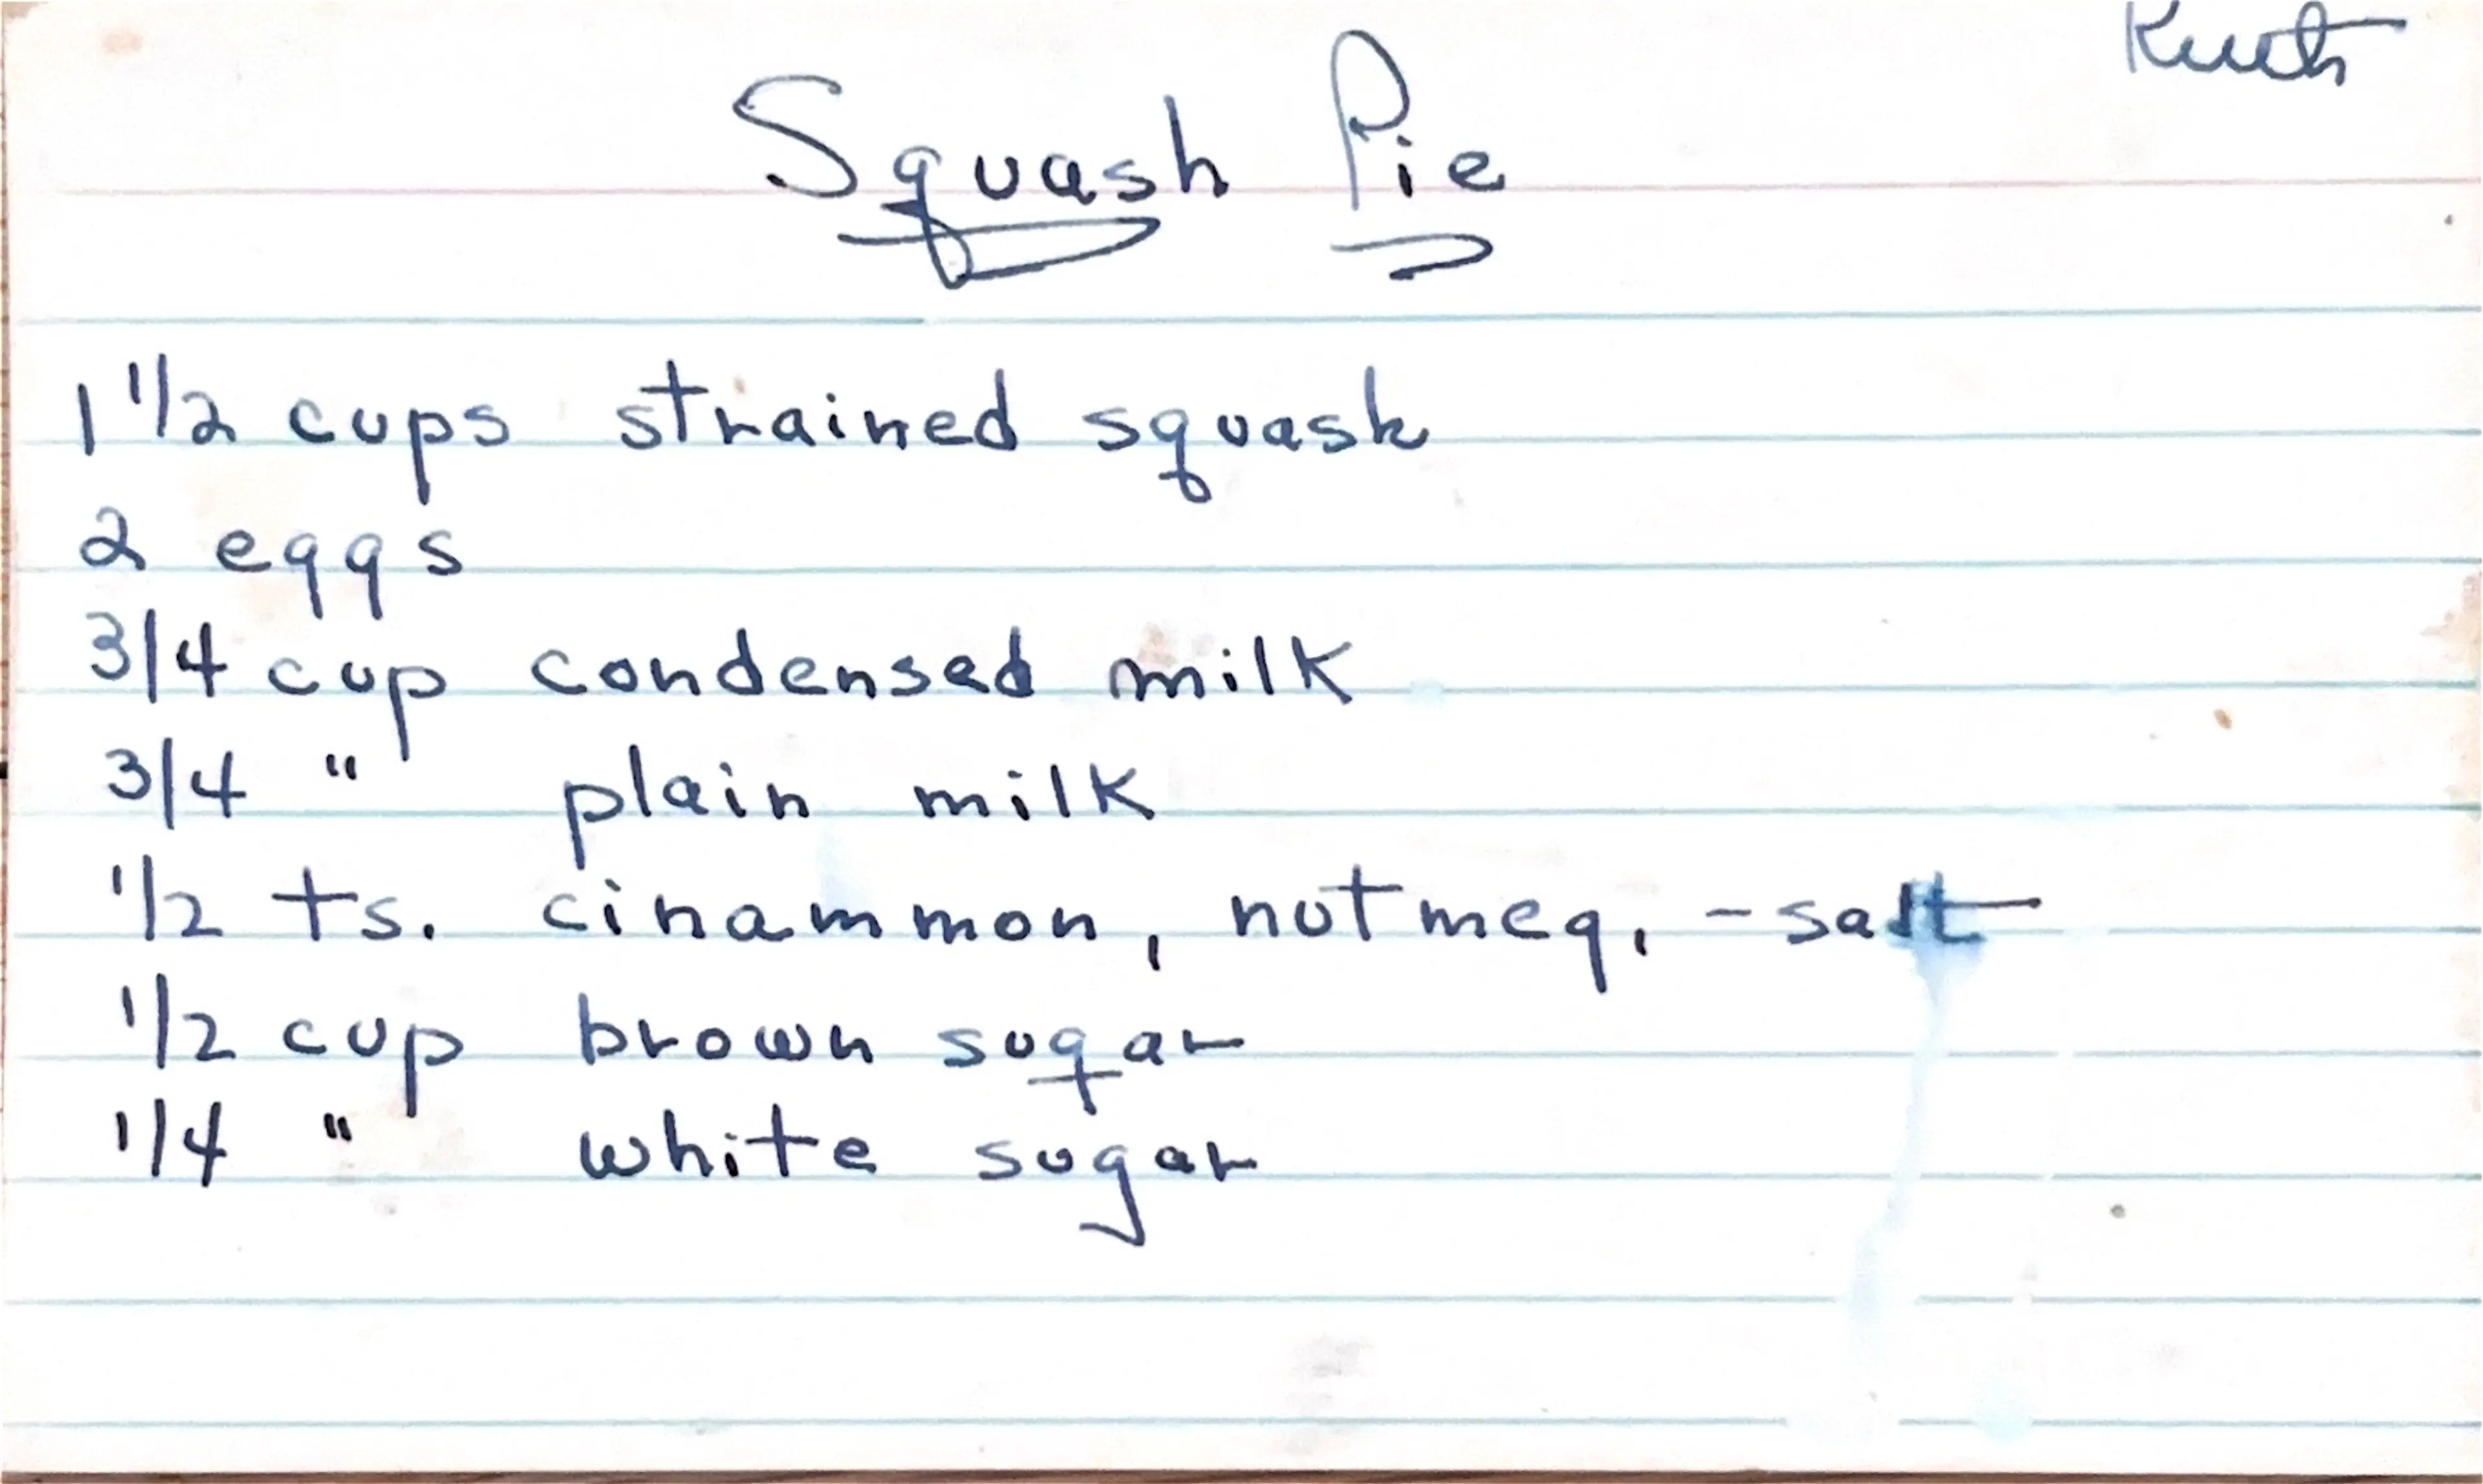 Ruth
Squash Pie
1 1/2 cups strained squash
2 eggs
3/4 cup condensed milk
3/4 " plain milk
1/2 ts. cinammon, nutmeg, - salt
1/2 cup brown sugar
1/4 " white sugar